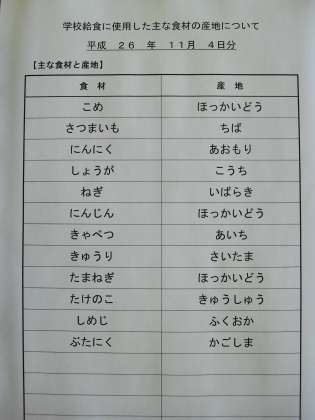 学校給食に使用した主な食材の産地について
平成 26 年 11月 4日分
【主な食材と産地】
食 材 産 地
こめ ほっかいどう
さつまいも ちば
にんにく あおもり
しょうが こうち
ねぎ いばらき
にんじん ほっかいどう
きゃべつ あいち
きゅうり さいたま
たまねぎ ほっかいどう
たけのこ きゅうしゅう
しめじ ふくおか
ぶたにく かごしま